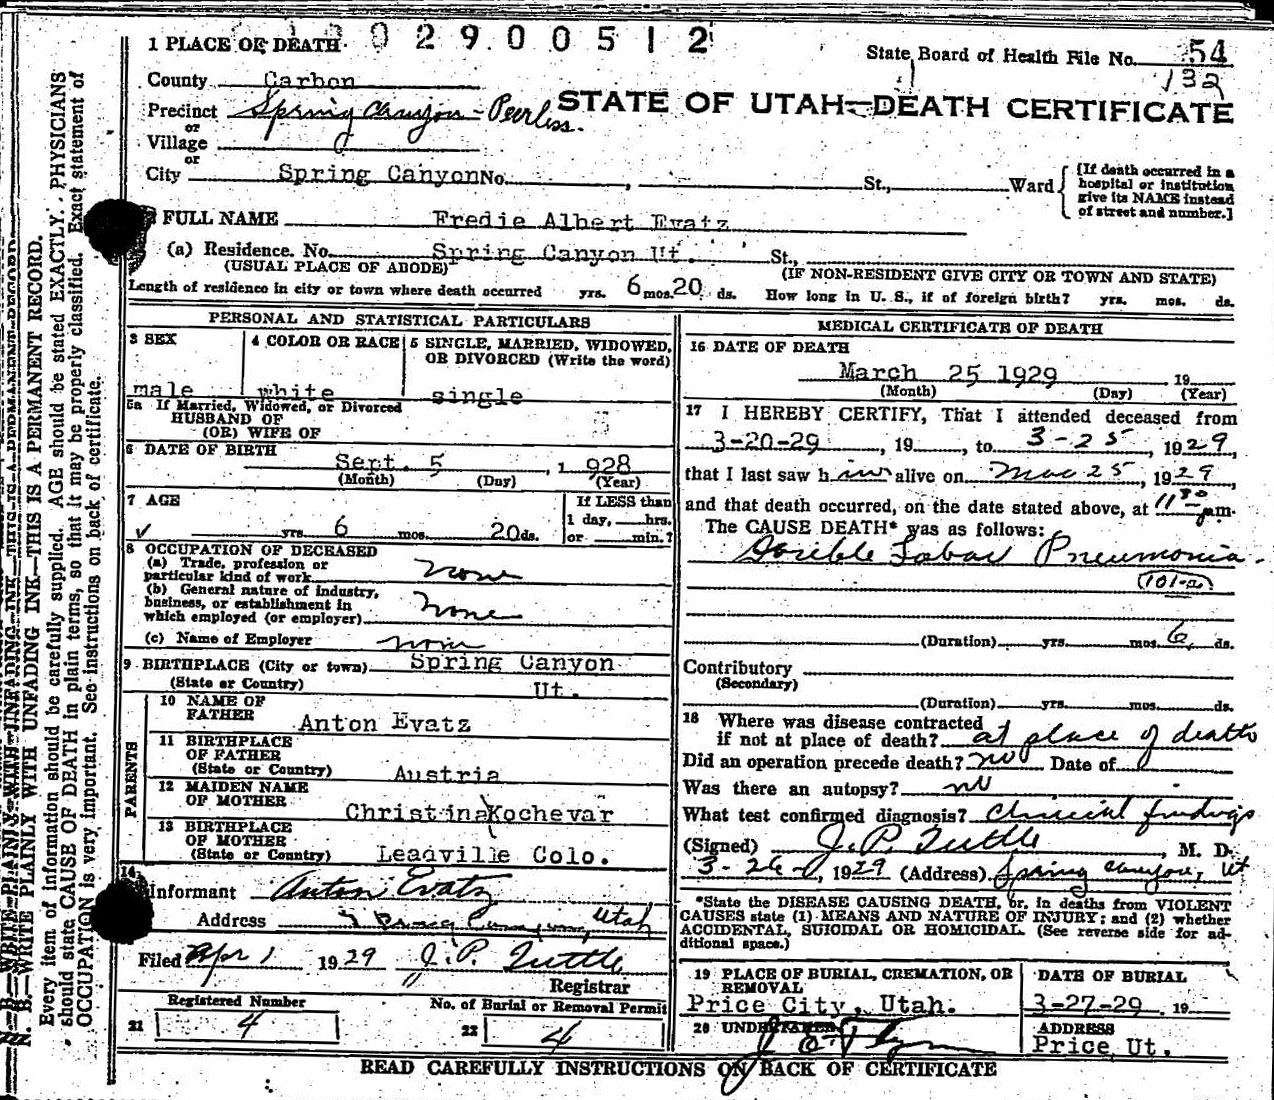 1 PLACE OF DEATH 3 0 2 9 0 0 5 1 2
State Board of Health File No. 54
132
County Carbon
Precinct Spring Canyon - Peerless.
STATE OF UTAH—DEATH CERTIFICATE
or
Village
or
City Spring Canyon No. , St., Ward
{If death occurred in a
hospital or institution
give its NAME instead
of street and number.]
FULL NAME Fredie Albert Evatz
(a) Residence. No. Spring Canyon Ut. St.,
(USUAL PLACE OF ABODE) (IF NON-RESIDENT GIVE CITY OR TOWN AND STATE)
Length of residence in city or town where death occurred yrs. 6 mos. 20 ds. How long in U. S., if of foreign birth? yrs. mos. ds.
PERSONAL AND STATISTICAL PARTICULARS
3 SEX
male
4 COLOR OR RACE
white
5 SINGLE, MARRIED, WIDOWED,
OR DIVORCED (Write the word)
single
5a If Married, Widowed, or Divorced
HUSBAND OF
(OR) WIFE OF
6 DATE OF BIRTH
Sept. 5, 1 928
(Month) (Day) (Year)
7 AGE
yrs. 6 mos. 20 ds.
If LESS than
1 day, hrs.
or min.?
8 OCCUPATION OF DECEASED
(a) Trade, profession or
particular kind of work none
(b) General nature of industry,
business, or establishment in
which employed (or employer) none
(c) Name of Employer none
9 BIRTHPLACE (City or town) Spring Canyon
(State or Country) Ut.
PARENTS
10 NAME OF
FATHER Anton Evatz
11 BIRTHPLACE
OF FATHER
(State or Country) Austria
12 MAIDEN NAME
OF MOTHER Christina Kochevar
13 BIRTHPLACE
OF MOTHER
(State or Country) Leadville Colo.
14
Informant Anton Evatz
Address Spring Canyon, Utah
Filed Apr 1 1929 J. P. Tuttle
Registrar
Registered Number
21 4
No. of Burial or Removal Permit
22 4
MEDICAL CERTIFICATE OF DEATH
16 DATE OF DEATH
March 25 1929 19
(Month) (Day) (Year)
17 I HEREBY CERTIFY, That I attended deceased from
3-20-29, 19 , to 3-25, 1929,
that I last saw him alive on Mar 25, 1929,
and that death occurred, on the date stated above, at 11 30 pm.
The CAUSE DEATH* was as follows:
Double Lobar Pneumonia.
(101-a)
(Duration) yrs. mos. 6 ds.
Contributory
(Secondary)
(Duration) yrs. mos. ds.
18 Where was disease contracted
if not at place of death? at place of death
Did an operation precede death? no Date of
Was there an autopsy? no
What test confirmed diagnosis? Clinical findings
(Signed) J. P. Tuttle, M. D.
3-26-, 1929 (Address) Spring Canyon, Ut
*State the DISEASE CAUSING DEATH, or, in deaths from VIOLENT
CAUSES state (1) MEANS AND NATURE OF INJURY; and (2) whether
ACCIDENTAL, SUICIDAL OR HOMICIDAL. (See reverse side for ad-
ditional space.)
19 PLACE OF BURIAL, CREMATION, OR
REMOVAL
Price City, Utah.
DATE OF BURIAL
3-27-29 19
20 UNDERTAKER
J E Flynn
ADDRESS
Price Ut.
READ CAREFULLY INSTRUCTIONS ON BACK OF CERTIFICATE
N. B.—WRITE PLAINLY WITH UNFADING INK—THIS IS A PERMANENT RECORD.
Every item of information should be carefully supplied. AGE should be stated EXACTLY. PHYSICIANS
should state CAUSE OF DEATH in plain terms, so that it may be properly classified. Exact statement of
OCCUPATION is very important. See instructions on back of certificate.